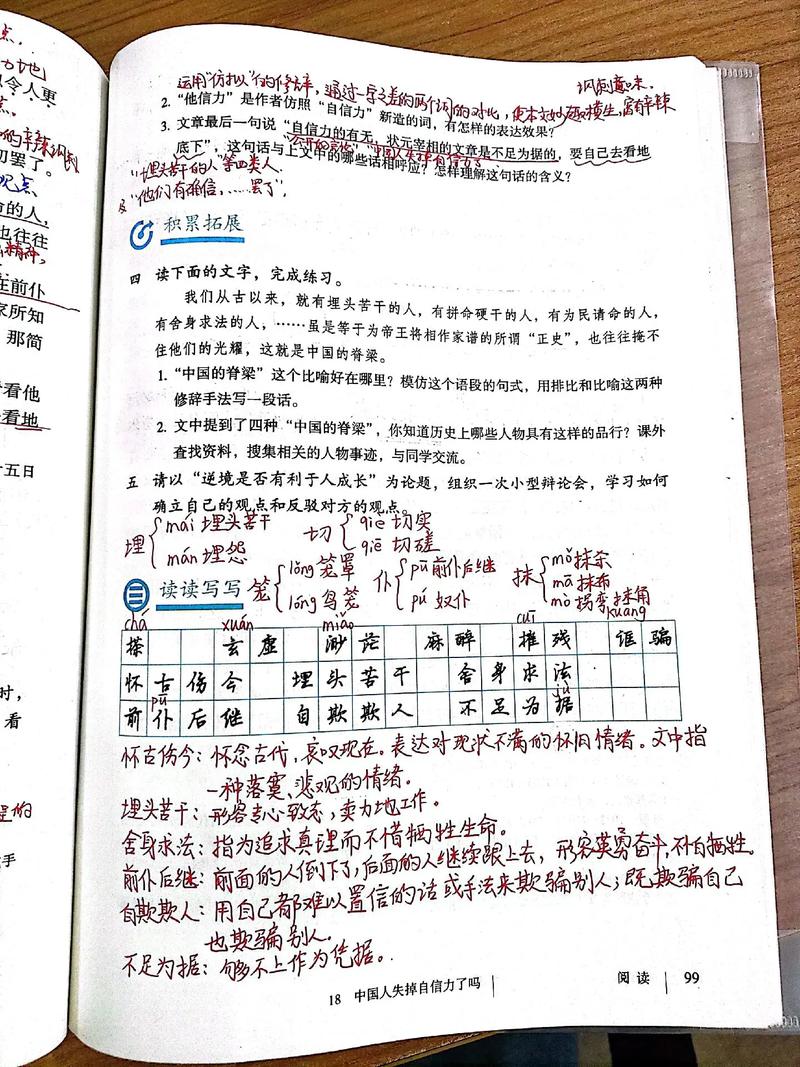 点.
地
似令人更
点.
的辛辣讽刺
切罢了。
观点
的人,
也往往
精神,
在前仆
家所知
那简
看看他
去看地
十五日
时,
看
是的
手
运用“仿拟”的修辞,通过一字之差的两个词的对比,使本文妙趣横生,富有辛辣
讽刺意味.
2. “他信力”是作者仿照“自信力”新造的词,有怎样的表达效果?
3. 文章最后一句说“自信力的有无,状元宰相的文章是不足为据的,要自己去看地
公开的言论”中国人失掉自信力了
底下”,这句话与上文中的哪些话相呼应?怎样理解这句话的含义?
“埋头苦干的人”等四类人.
及“他们有确信,……罢了”.
积累拓展
四 读下面的文字,完成练习。
我们从古以来,就有埋头苦干的人,有拼命硬干的人,有为民请命的人,
有舍身求法的人,……虽是等于为帝王将相作家谱的所谓“正史”,也往往掩不
住他们的光耀,这就是中国的脊梁。
1. “中国的脊梁”这个比喻好在哪里?模仿这个语段的句式,用排比和比喻这两种
修辞手法写一段话。
2. 文中提到了四种“中国的脊梁”,你知道历史上哪些人物具有这样的品行?课外
查找资料,搜集相关的人物事迹,与同学交流。
五 请以“逆境是否有利于人成长”为论题,组织一次小型辩论会,学习如何
确立自己的观点和反驳对方的观点。
埋 mái 埋头苦干
mán 埋怨
切 qiè 切实
qiē 切磋
读读写写
笼 lǒng 笼罩
lóng 鸟笼
仆 pū 前仆后继
pú 奴仆
抹 mǒ 抹杀
mā 抹布
mò 拐弯抹角
chá xuán miǎo cuī kuāng
搽 玄虚 渺茫 麻醉 摧残 诓骗
怀古伤今 埋头苦干 舍身求法
pū jù
前仆后继 自欺欺人 不足为据
怀古伤今:怀念古代,哀叹现在。表达对现状不满的怀旧情绪。文中指
一种落寞、悲观的情绪。
埋头苦干:形容专心致志,卖力地工作。
舍身求法:指为追求真理而不惜牺牲生命。
前仆后继:前面的人倒下了,后面的人继续跟上去,形容英勇奋斗,不怕牺牲。
自欺欺人:用自己都难以置信的话或手法来欺骗别人;既欺骗自己
也欺骗别人.
不足为据:够不上作为凭据。
18 中国人失掉自信力了吗
阅读 99